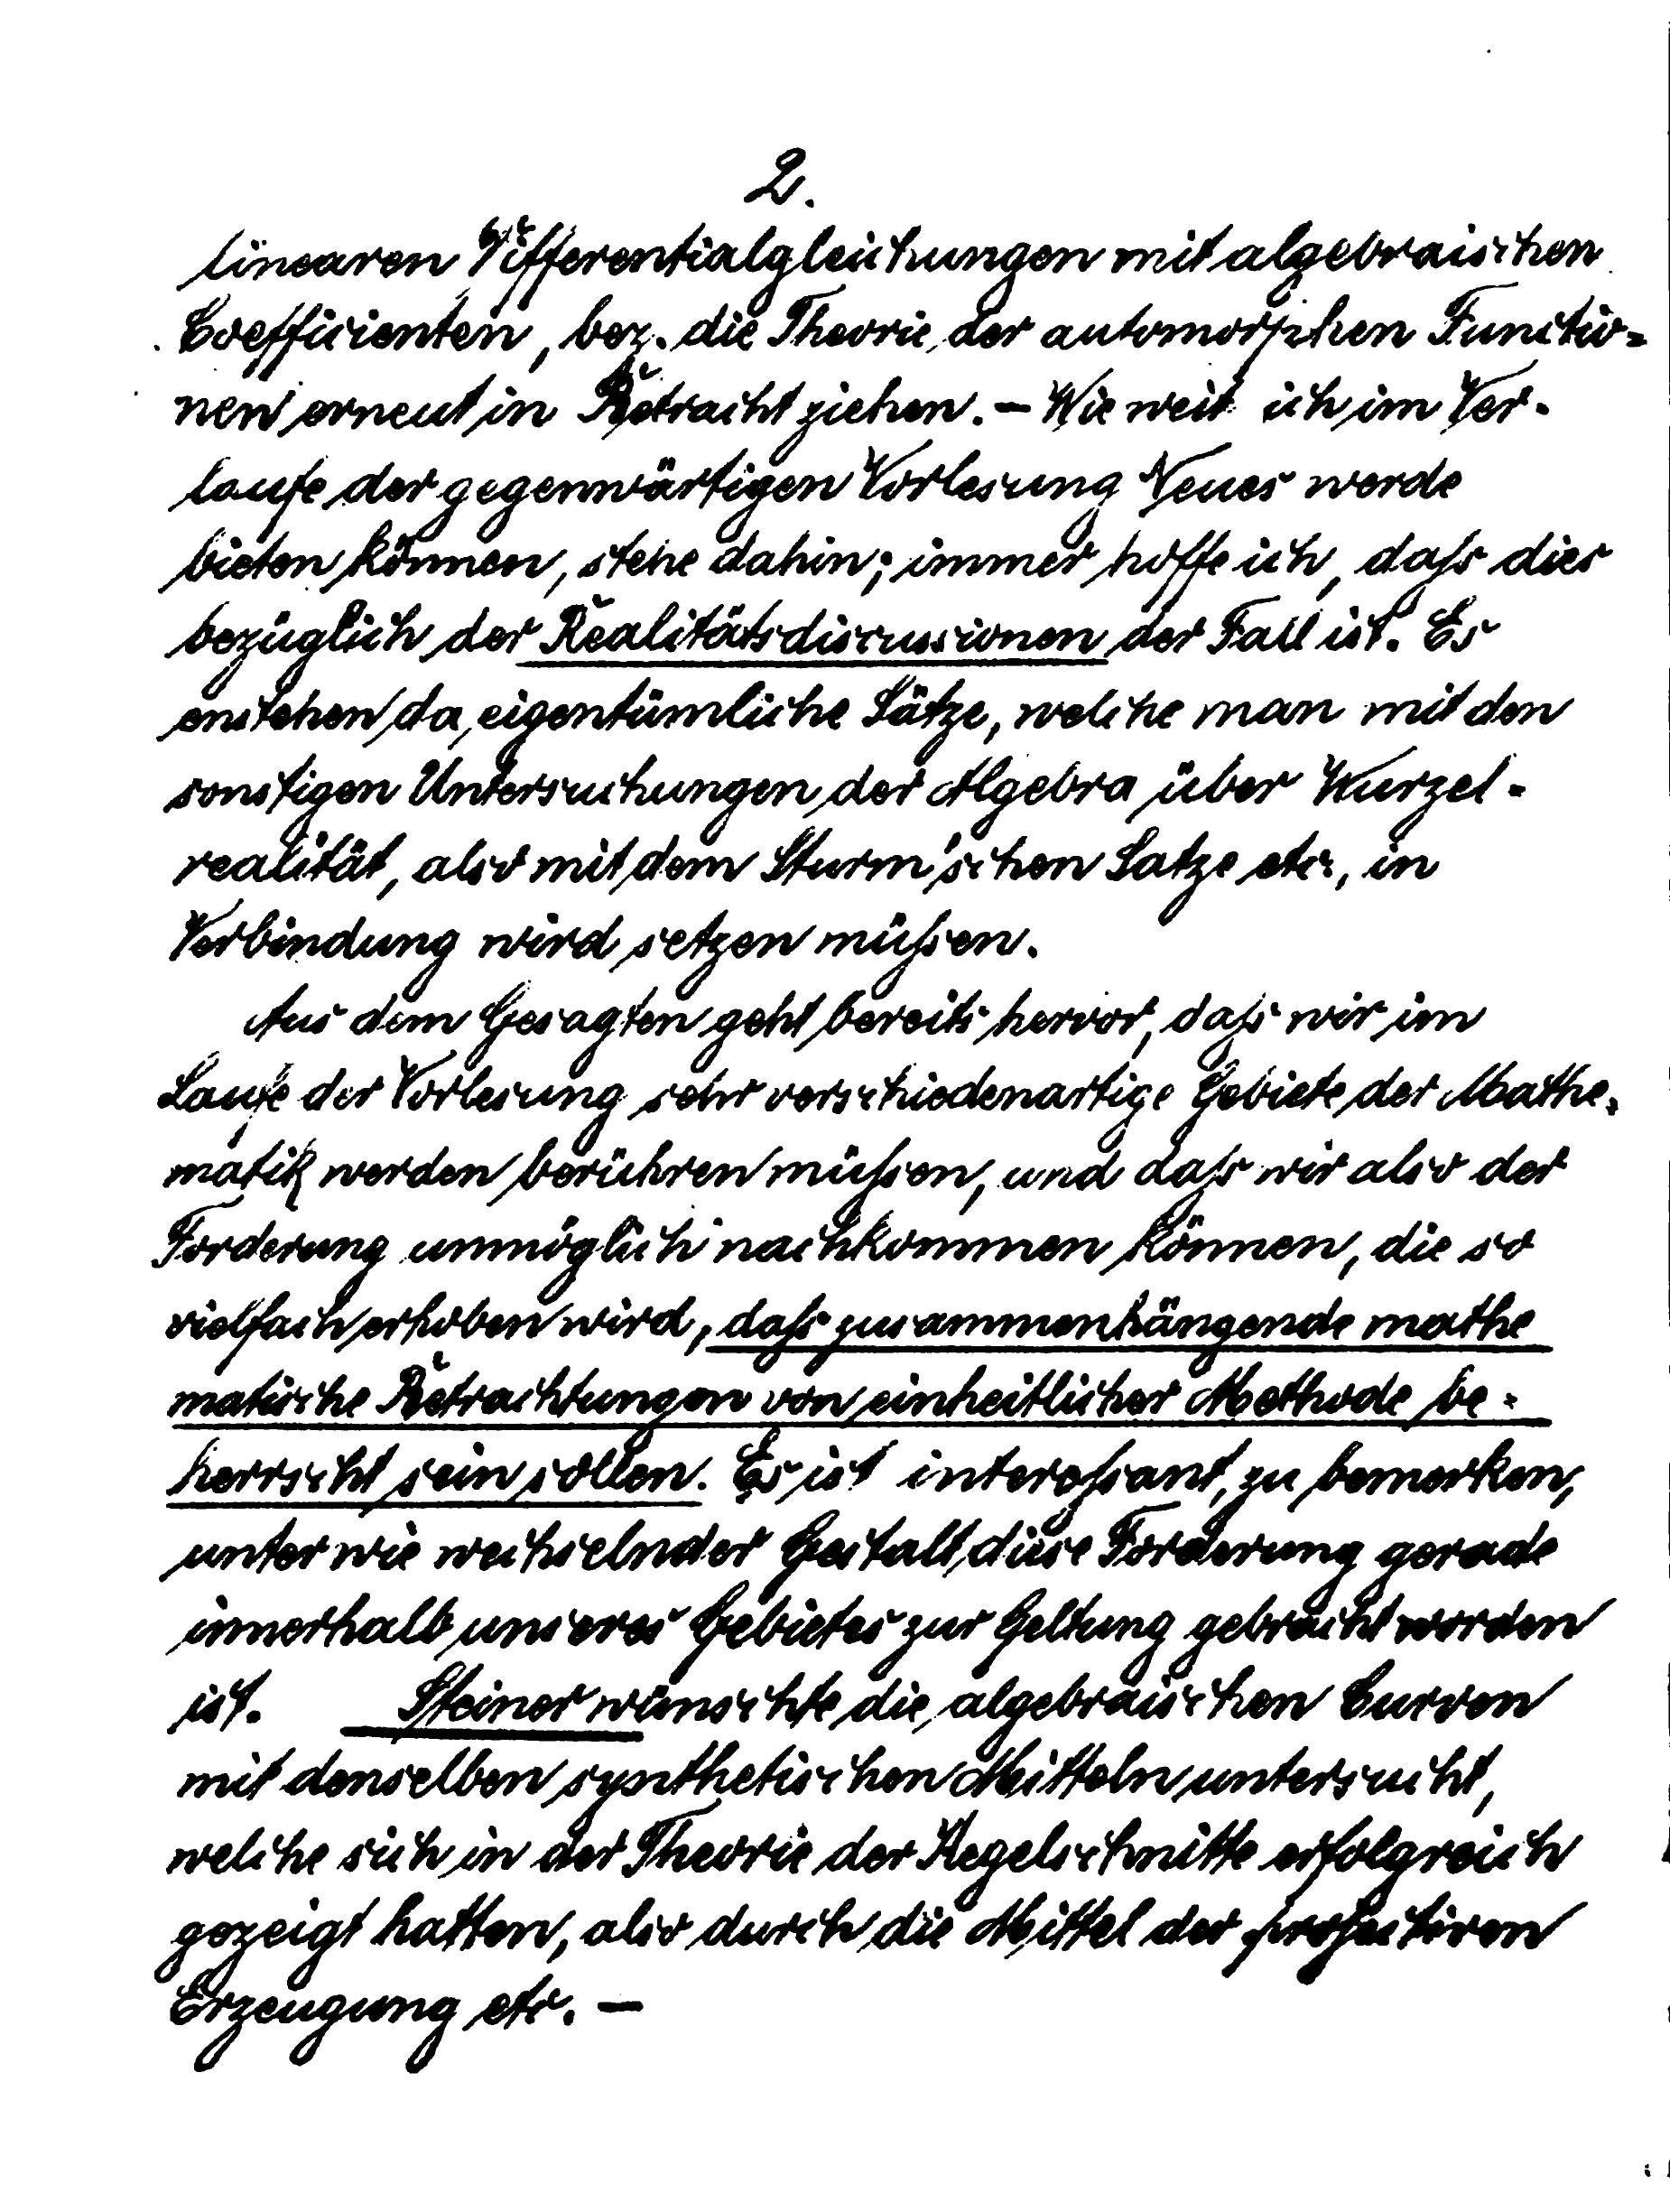 2.
linearen Differentialgleichungen mit algebraischen
Coefficienten, bez. die Theorie der automorphen Functio=
nen erneut in Betracht ziehen. – Wie weit ich im Ver-
laufe der gegenwärtigen Vorlesung Neues werde
bieten können, stehe dahin; immer hoffe ich, daſs dies
bezüglich der Realitätsdiscussionen der Fall ist. Es
enstehen da eigentümliche Sätze, welche man mit den
sonstigen Untersuchungen der Algebra über Wurzel-
realität, also mit dem Sturm'schen Satze etc., in
Verbindung wird setzen müſsen.
Aus dem Gesagten geht bereits hervor, daſs wir im
Laufe der Vorlesung sehr verschiedenartige Gebiete der Mathe-
matik werden berühren müſsen, und daſs wir also der
Forderung unmöglich nachkommen können, die so
vielfach erhoben wird, daſs zusammenhängende mathe
matische Betrachtungen von einheitlicher Methode be-
herrscht sein sollen. Es ist intereſsant, zu bemerken,
unter wie wechselnder Gestalt diese Forderung gerade
innerhalb unseres Gebietes zur Geltung gebracht worden
ist. Steiner wünschte die algebraischen Curven
mit denselben synthetischen Mitteln untersucht,
welche sich in der Theorie der Kegelschnitte erfolgreich
gezeigt hatten, also durch die Mittel der projectiven
Erzeugung etc. –